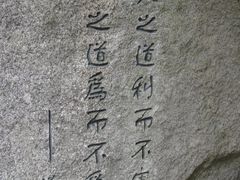 之道利而不
之道為而不